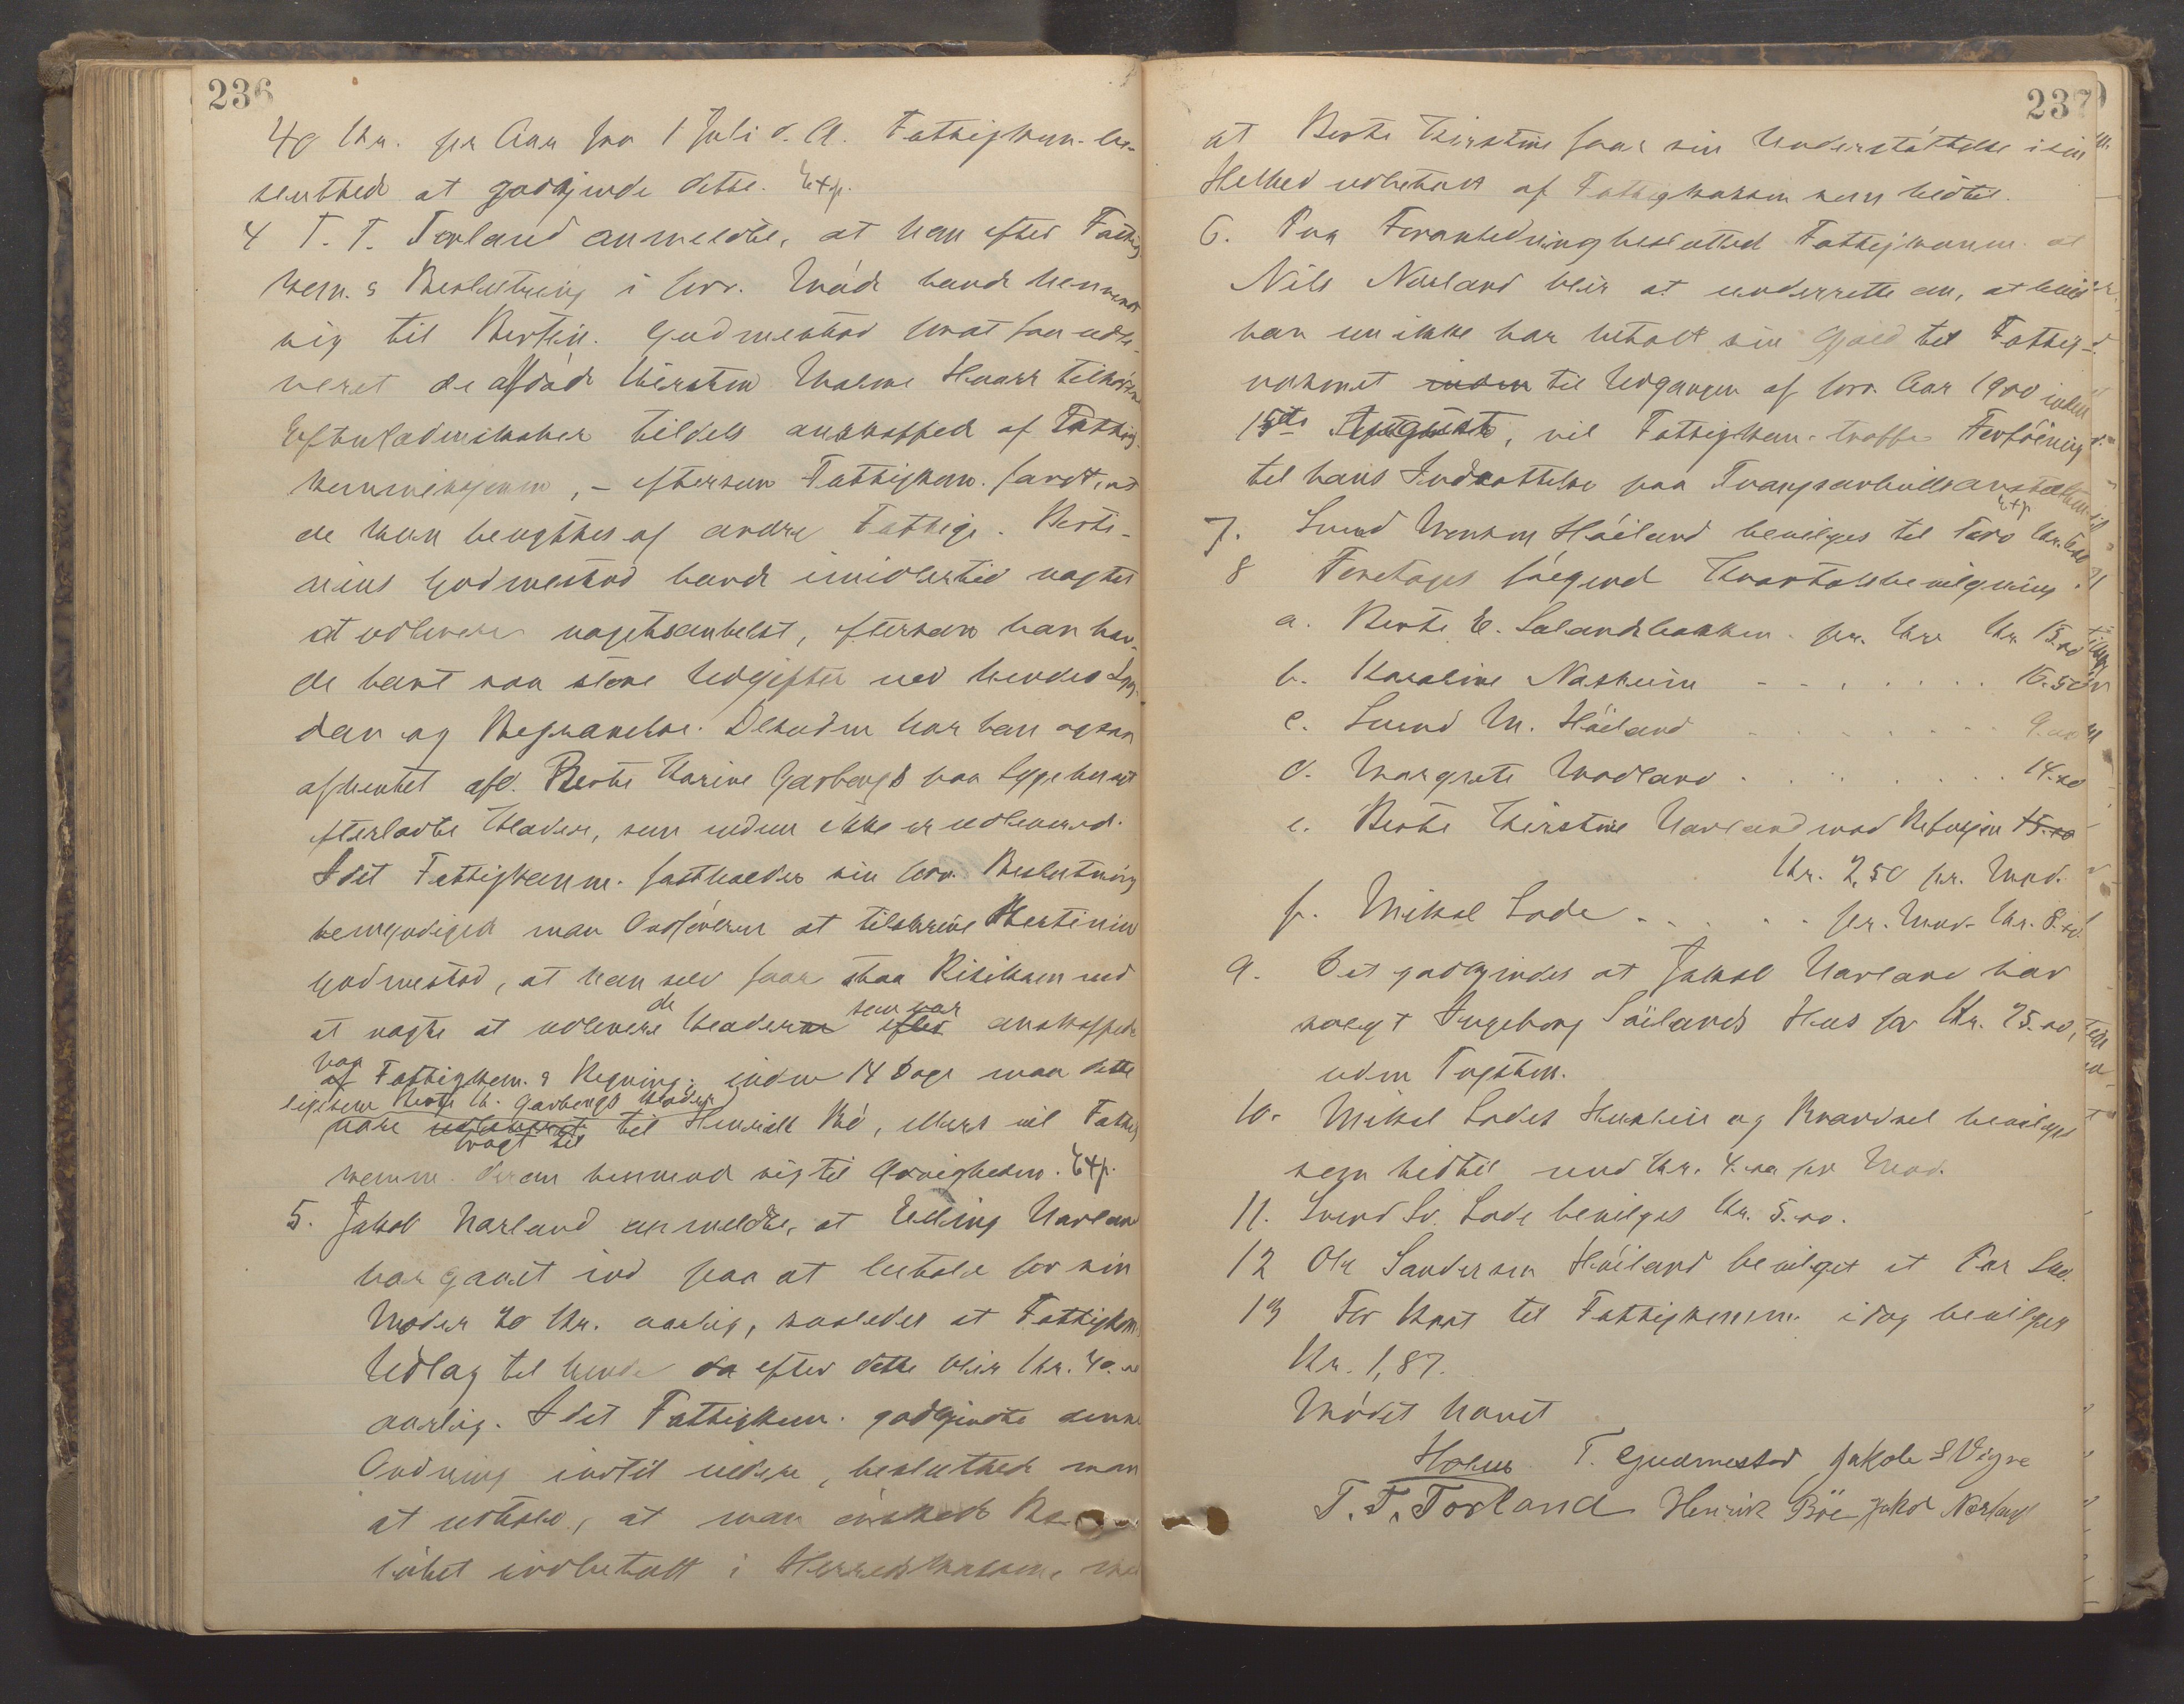 236
40 Kr. per Aar fra 1 Juli d. A. Fattigkom. be-
sluttede at godkjende dette. Exp.
4 T. T. Torland anmeldte, at han efter Fattig
kom.s Beslutning i forr. Møde havde henvendt
sig til Bertin. Gudmestad for at faa udle-
veret de afdøde Kirsten Malene Haars tilhørende
Efterladenskaber tildels anskaffed af Fattig-
kommissjonen, – eftersom Fattigkom. fandt, at
de kan benyttes af andre Fattige. Berti-
nius Gudmestad havde imidlertid nægtet
at udlevere nogetsomhelst, eftersom han hav-
de havt saa store Udgifter ved hendes Syg-
dom og Begravelse. Desuden har han ogsaa
afhentet afd. Berte Karine Garborgs paa Sygehuset
efterladte Klæder, som endnu ikke er udleveret.
Idet Fattigkomm. fastholder sin forr. Beslutning
bemyndiges man Ordføreren at tilskrive Bertinius
Gudmestad, at han selv faar staa Risikoen ved
at nægte at udlevere de Klæder som var anskaffede
paa Fattigkom.s Regning; inden 14 Dage maa dette
ligesom Berte K. Garborgs Klæder
være bragt til Henrik Bø, ellers vil Fattig
komm. derom henvende sig til Øvrigheden. Exp.
5. Jakob Narland anmeldte, at Elling Narland
har gaaet ind paa at betale for sin
Moder 20 Kr. aarlig, saaledes at Fattigkom.
Udlæg til hende da efter dette blir Kr. 40.00
aarlig. Idet Fattigkom. godkjendte denne
Ordning indtil videre, besluttede man
at udtale, at man ønskede Be-
løbet indbetalt i Herredskassen, men
237
at Berte Kirstine faar sin Understøttelse i sin
Helhed udbetalt af Fattigkassen som hidtil.
6. Paa Foranledning besluttede Fattigkomm. at
Nils Narland blir at underrette om, at hvis
han nu ikke har betalt sin Gjæld til Fattig-
væsenet til Udgangen af forr. Aar 1900 inden
15de August, vil Fattigkom. træffe Forføining
til hans Indsættelse paa Tvangsarbeidsanstalten
Exp
7. Svend Monsen Høiland bevilges til Foro Kr.
8 Foretoges følgende Kvartalsbevilgning.
a. Berte E. Salandsbakken pr. Kr. 15.00
b. Karoline Nasheim . . . . . . 16.50
c. Svend M. Høiland . . . . . . 9.00
d. Margrete Modland . . . . . . 14.00
e. Berte Kirstine Narland mod Refusjon 15.00
Kr. 2,50 pr. Mnd.
f. Mikal Lode . . . . . pr. Mnd. Kr. 8.00
9. Det godkjendes at Jakob Narland har
solgt Ingeborg Søilands Hus for Kr. 25.00,
uden Tagsten.
10. Mikal Lodes Husleie og Brændsel bevilges
som hidtil med Kr. 4.00 pr Mnd.
11. Svend Sv. Lode bevilges Kr. 5.00.
12 Ole Sandersen Høiland bevilget et Par Sko.
13 For Kost til Fattigkomm. idag bevilges
Kr. 1,87.
Mødet hævet
T. Gudmestad Jakob S Vigre
T. T. Torland Henrik Bøe Jakob Narland